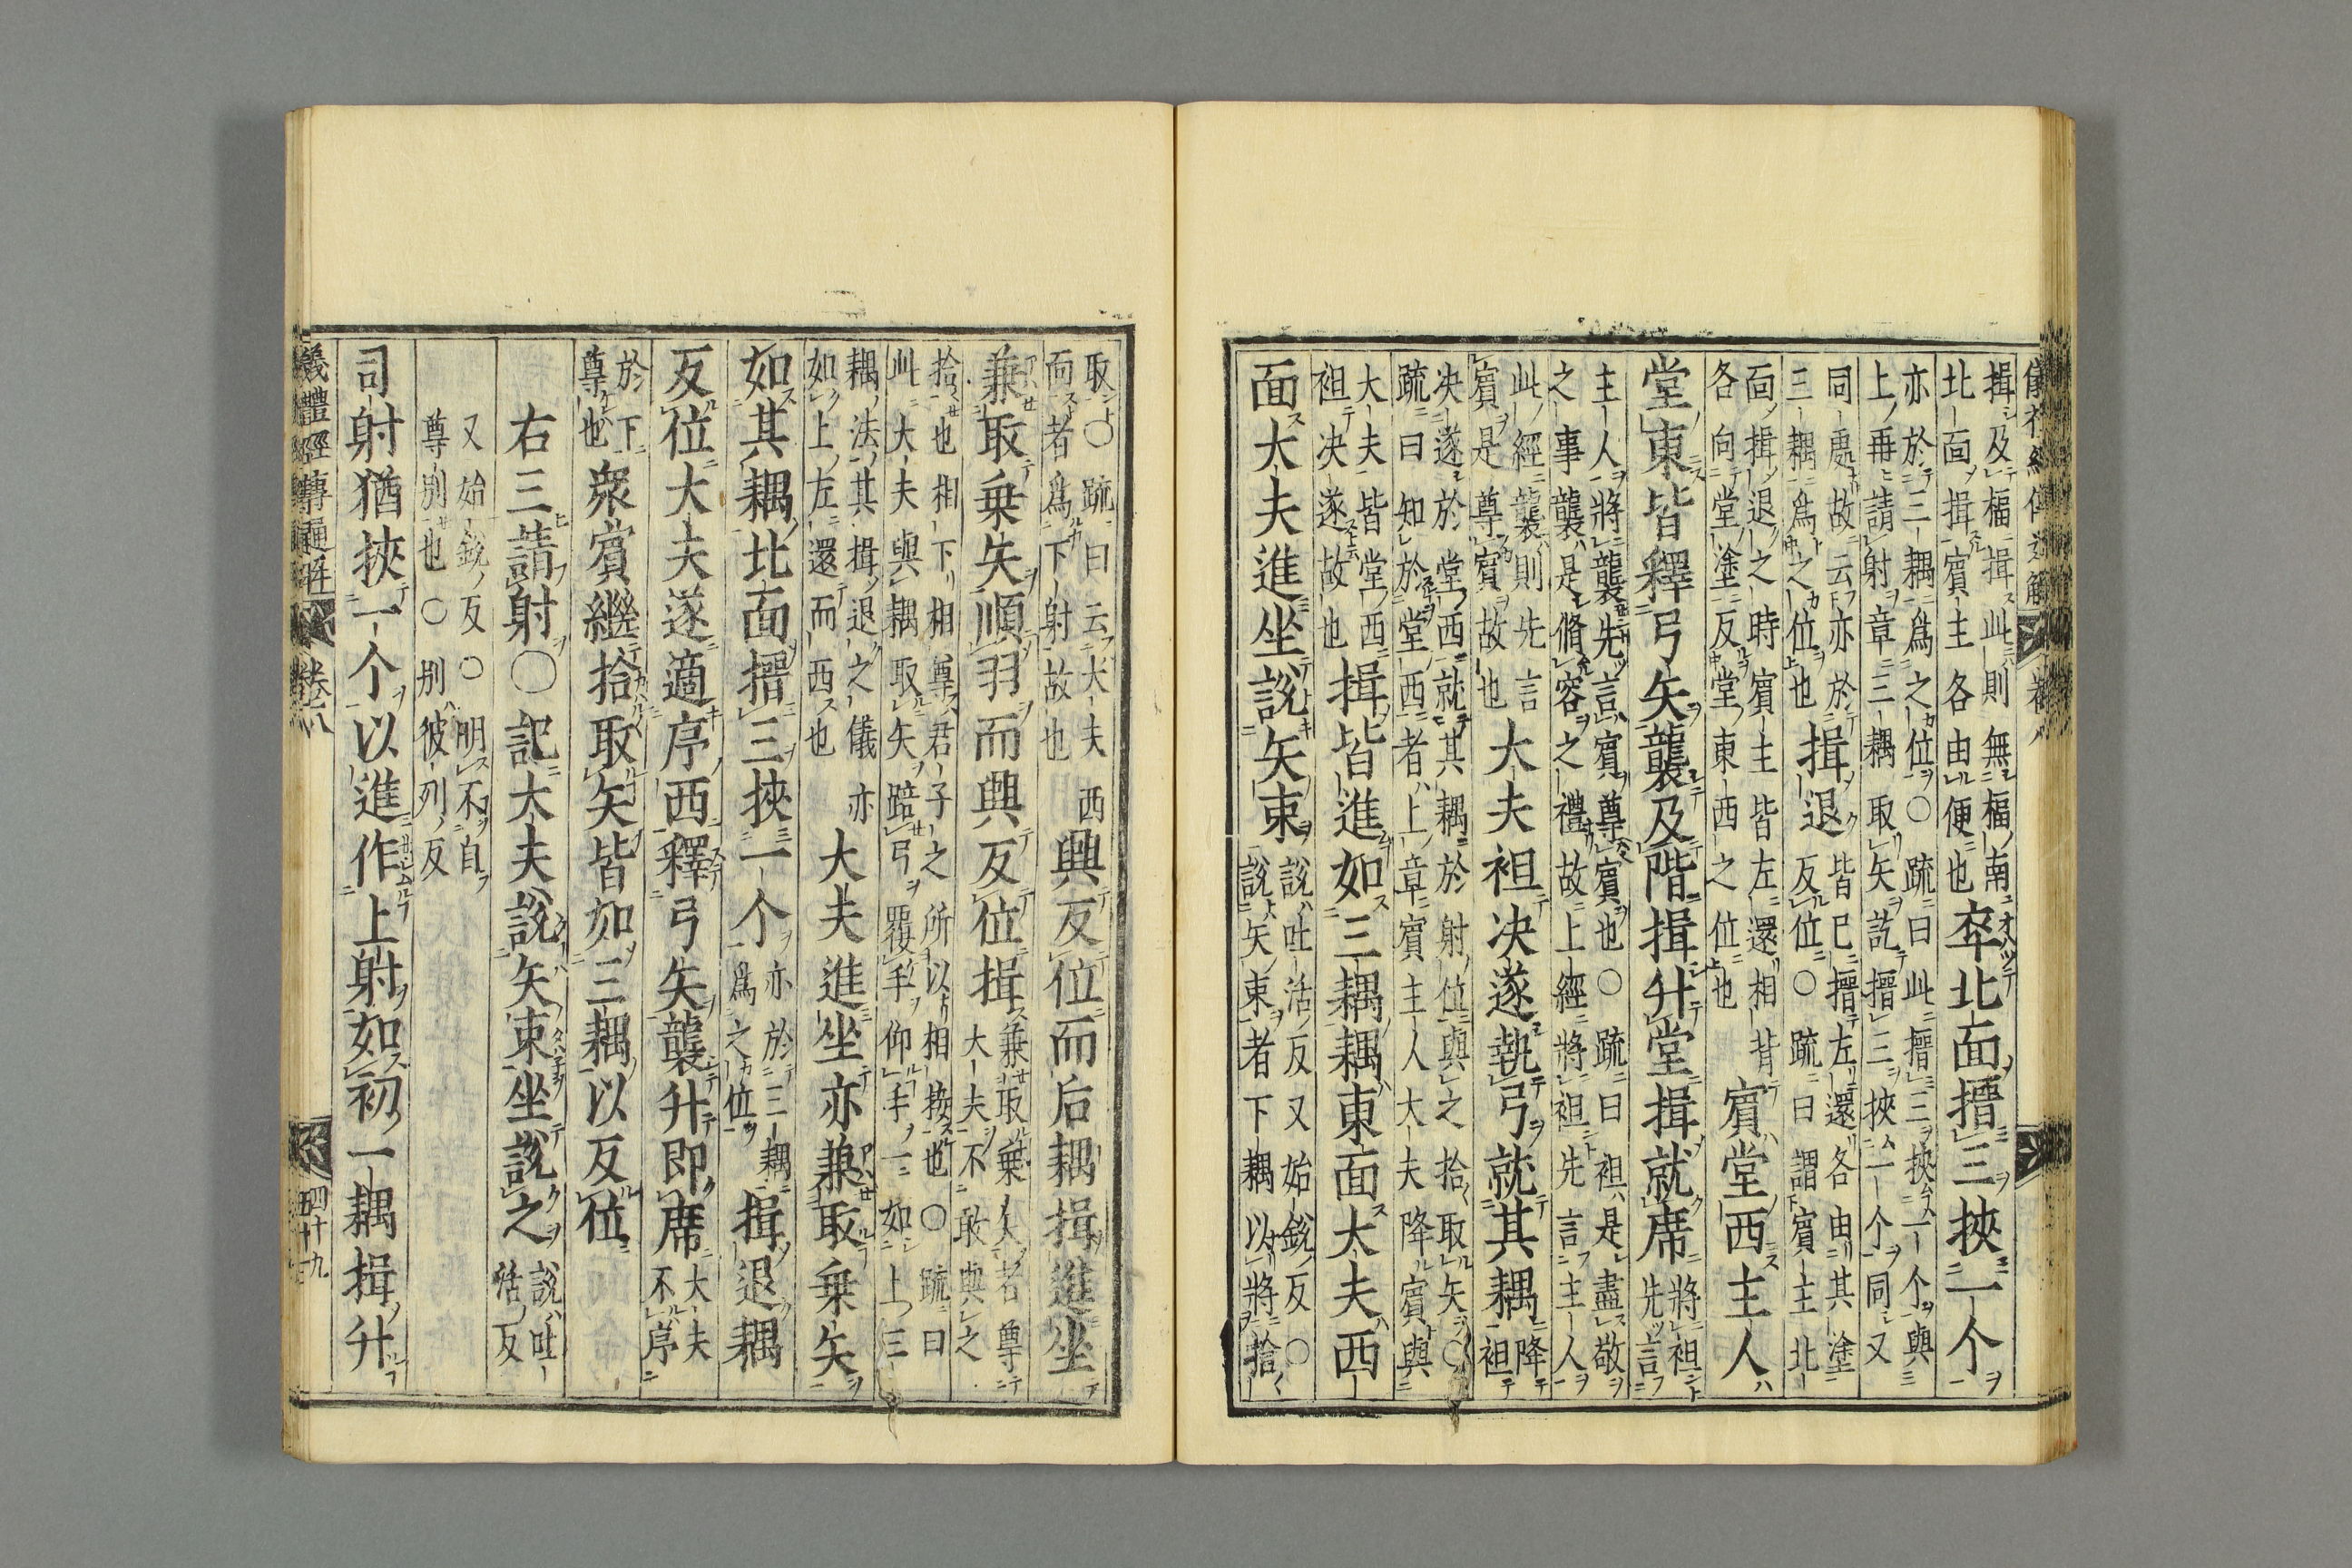 揖及楅揖此則無楅南
北面揖賓主各由便也卒北面搢三挾一个
亦於三耦為之位○疏曰此搢三挾一个與
上再請射章三耦取矢訖搢三挾一个同又
同處故云亦於揖退皆已搢左還各由其塗
三耦為之位也揖退反位○疏曰謂賓主北
面揖退之時賓主皆左還相背賓堂西主人
各向堂塗反堂東西之位也
堂東皆釋弓矢襲及階揖升堂揖就席將袒
先言
主人將襲先言賓尊賓也○疏曰袒是盡敬
之事襲是脩容之禮故上經將袒先言主人
此經襲則先言大夫袒決遂執弓就其耦降
賓是尊賓故也袒
決遂於堂西就其耦於射位與之拾取矢○
疏曰知於堂西者上章賓主人大夫降賓與
大夫皆堂西揖皆進如三耦耦東面大夫西
袒決遂故也
面大夫進坐說矢束說吐活反又始銳反○
說矢束者下耦以將拾
取○疏曰云大夫西興反位而后耦揖進坐
面者為下射故也
兼取乗矢順羽而興反位揖兼取乗矢者尊
大夫不敢與之
拾也相下相尊君子之所以相接也○疏曰
此大夫與耦取矢踣弓覆手仰手一如上三
耦法其揖退之儀亦大夫進坐亦兼取乗矢
如上左還而西也
如其耦北面搢三挾一个亦於三耦揖退耦
為之位
反位大夫遂適序西釋弓矢襲升即席大夫
不序
於下
尊也衆賓繼拾取矢皆如三耦以反位
右三請射○記大夫說矢束坐說之說吐
活反
又始銳反○明不自
尊別也○別彼列反
司射猶挾一个以進作上射如初一耦揖升
儀禮經傳通解 卷八 四十九